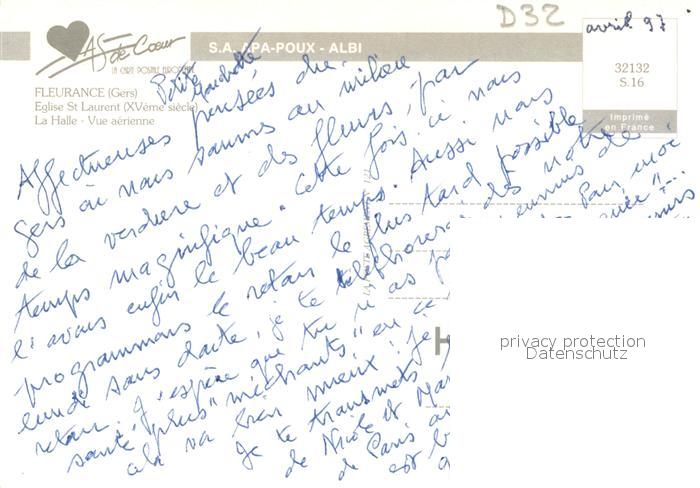 D32
avril 97
As de Cœur
LA CARTE POSTALE EUROPÉENNE
S.A. APA-POUX - ALBI
FLEURANCE (Gers)
Eglise St Laurent (XVème siècle)
La Halle - Vue aérienne
32132
S.16
Imprimé
en France
Petite
Affectueuses pensées du
gers où nous sommes au milieu
de la verdure et des fleurs, par
temps magnifique. Cette fois ci nous
l'avons enfin le beau temps. Aussi nous
programmons le retour le plus tard possible
lundi sans doute, je te téléphonerai dès notre
retour. J'espère que tu n'as pas
santé plus "méchants" en ce
Pour moi
cela va bien mieux! je
Je te transmets
de Nicole et
de Paris
est
privacy protection
Datenschutz